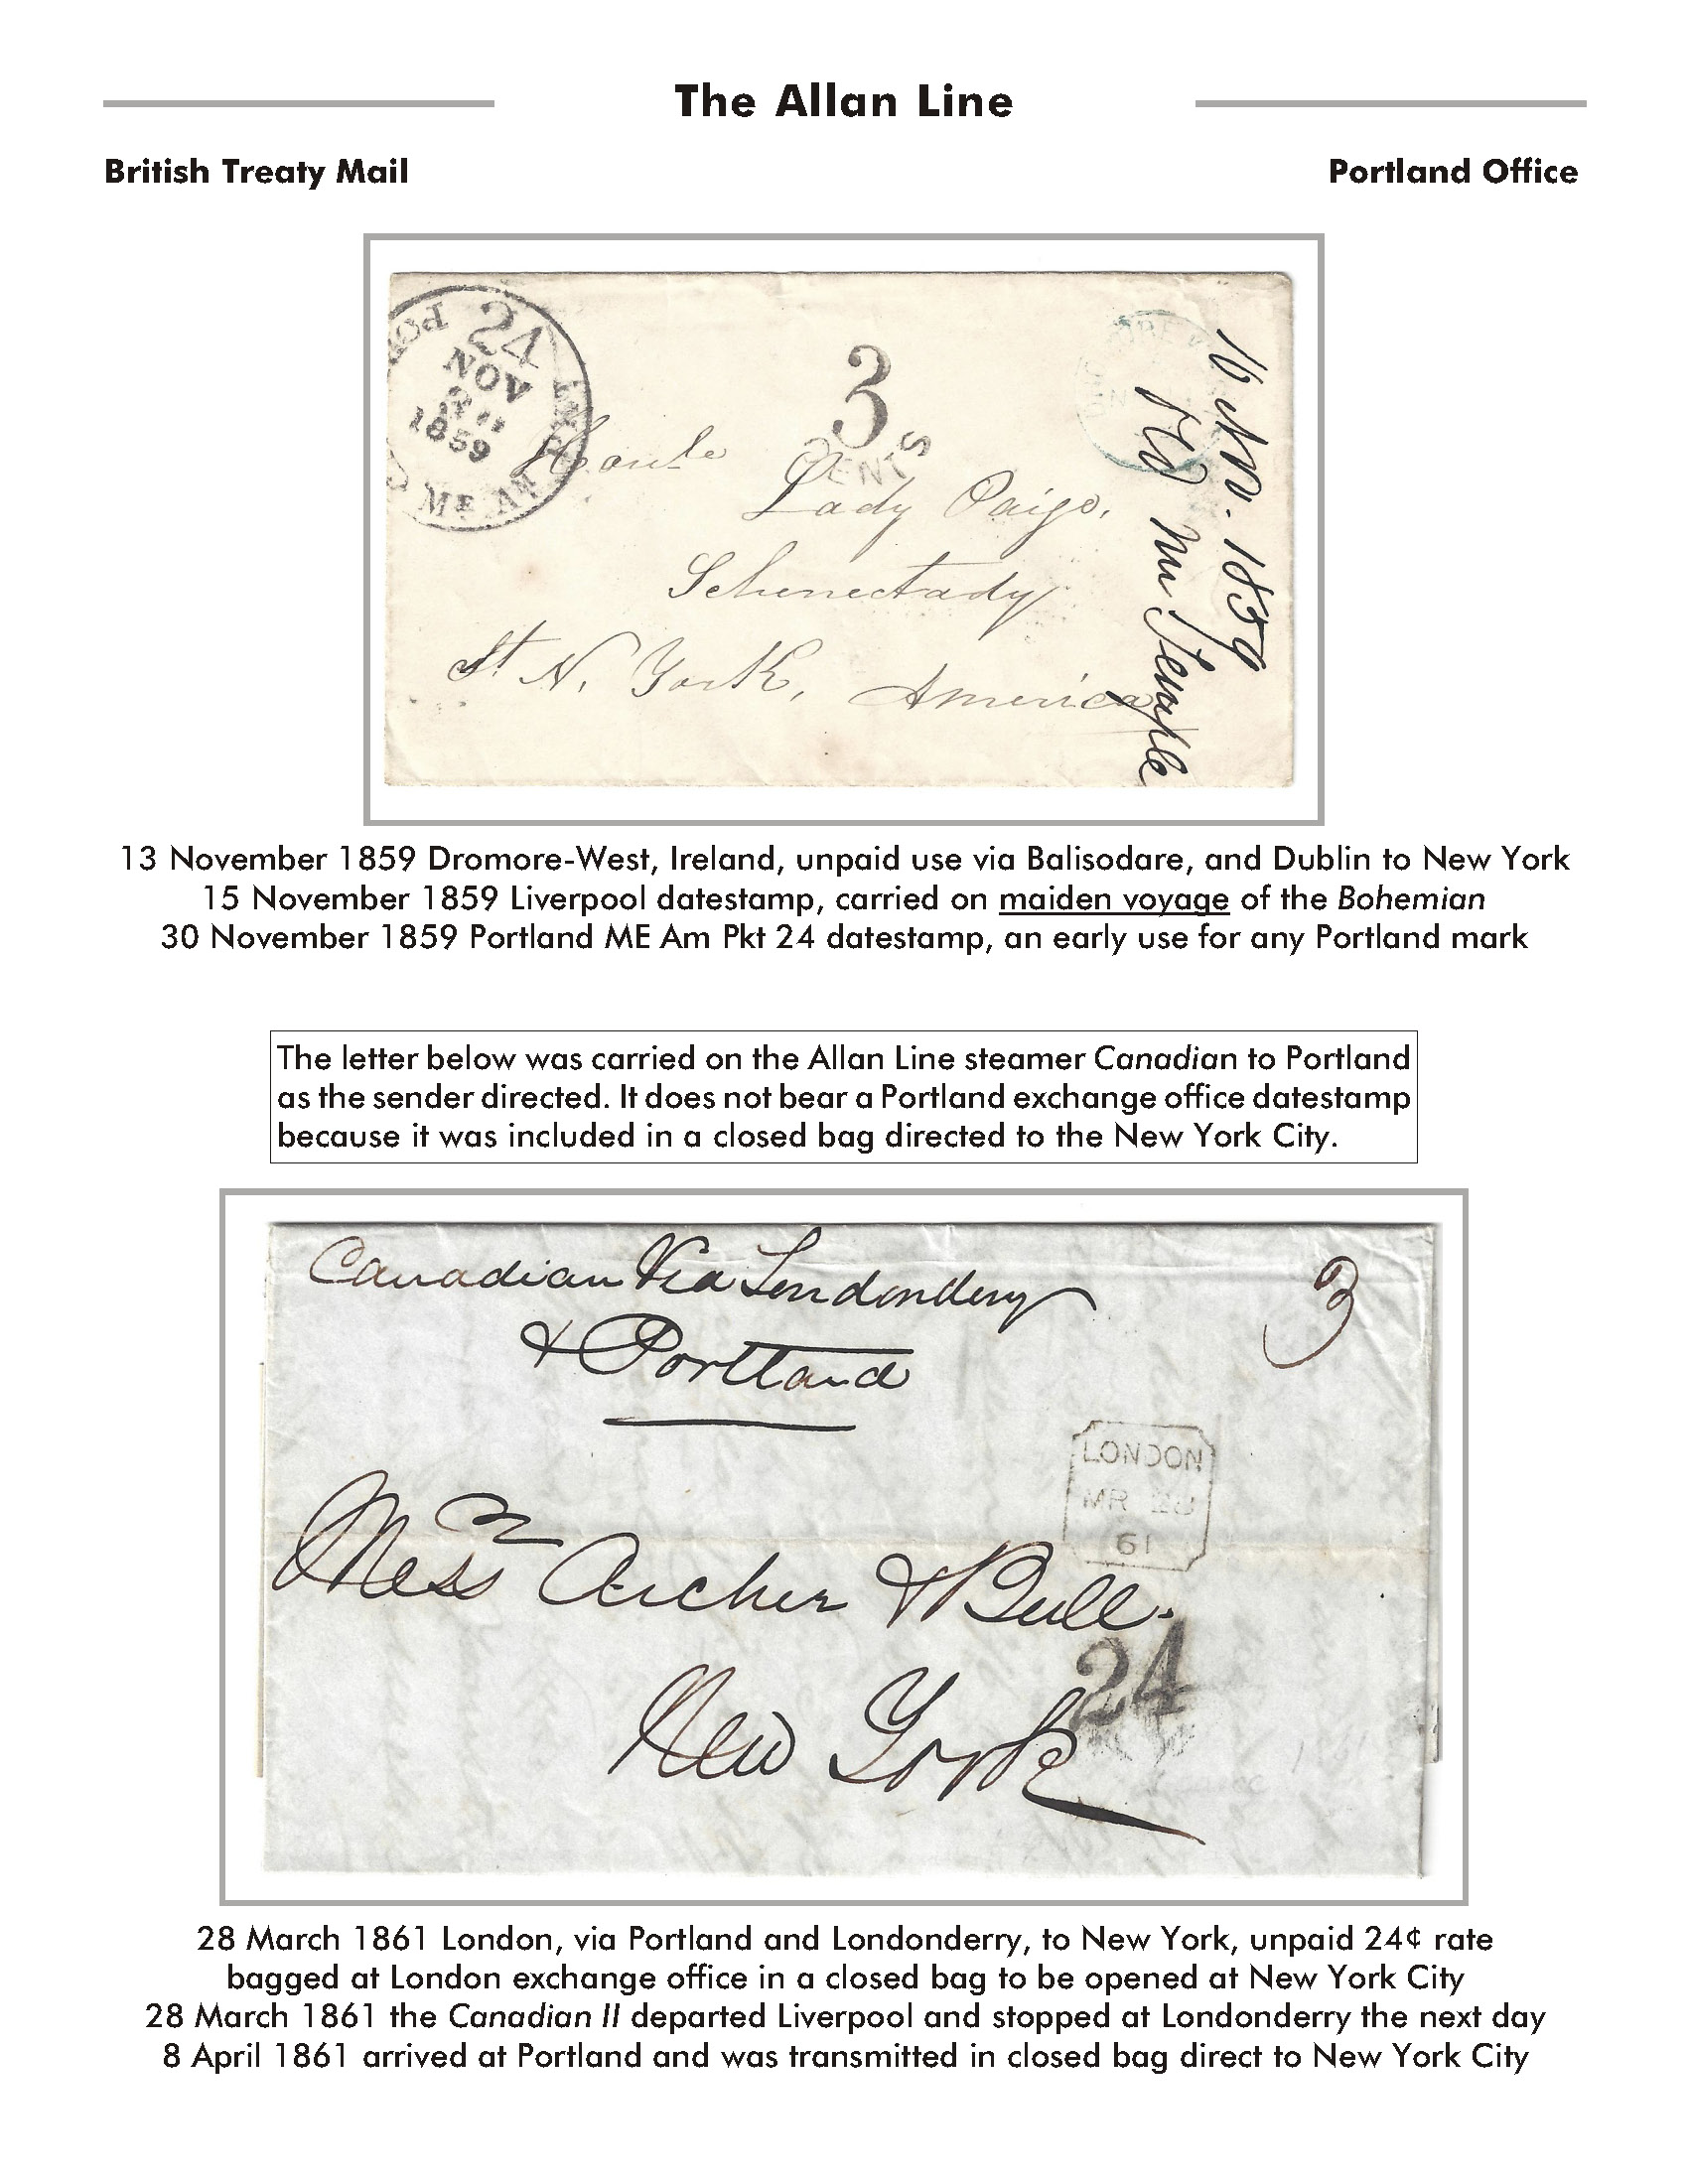 The Allan Line
British Treaty Mail
Portland Office
24
NOV
1859
ME AM
3
CENTS
Lady Paige,
Schenectady
St. N. York, America
16 Nov. 1859
Mr Temple
13 November 1859 Dromore-West, Ireland, unpaid use via Balisodare, and Dublin to New York
15 November 1859 Liverpool datestamp, carried on maiden voyage of the Bohemian
30 November 1859 Portland ME Am Pkt 24 datestamp, an early use for any Portland mark
The letter below was carried on the Allan Line steamer Canadian to Portland
as the sender directed. It does not bear a Portland exchange office datestamp
because it was included in a closed bag directed to the New York City.
Canadian Via Londonderry
& Portland
3
LONDON
MR 28
61
Messrs Archer & Bull.
24
New York
28 March 1861 London, via Portland and Londonderry, to New York, unpaid 24¢ rate
bagged at London exchange office in a closed bag to be opened at New York City
28 March 1861 the Canadian II departed Liverpool and stopped at Londonderry the next day
8 April 1861 arrived at Portland and was transmitted in closed bag direct to New York City